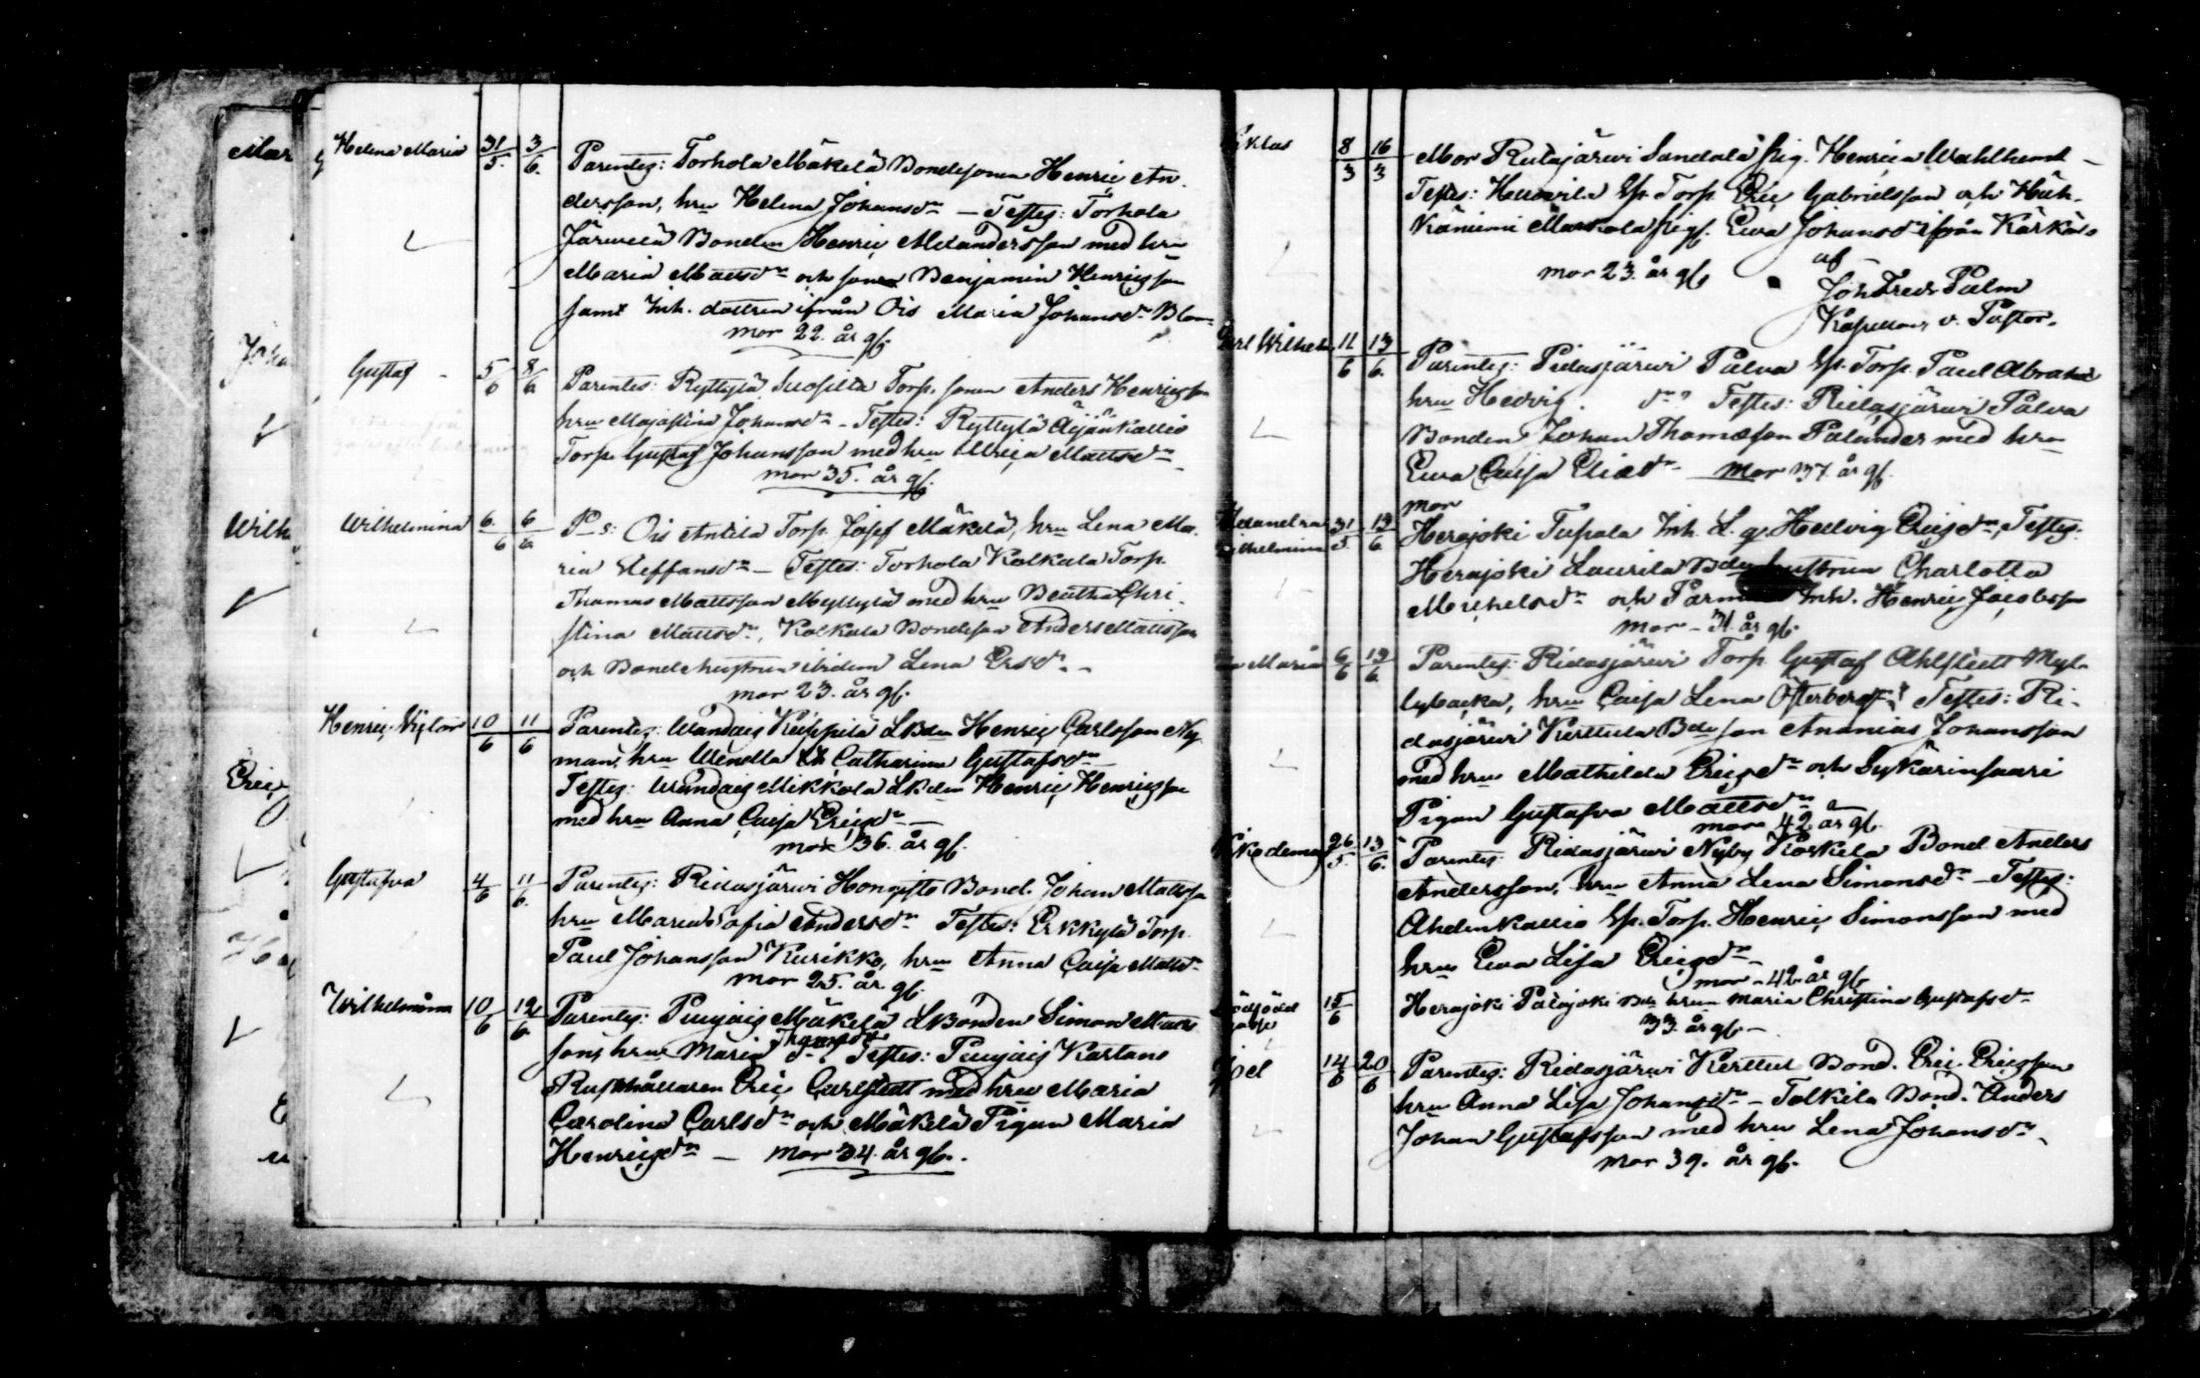 Helena Maria 31/5. 3/6. Parentes: Torhola Mäkelä Bondesonen Henric An-
dersson, hru Helena Johansdr — Testes: Torhola
Järwelä Bonden Henric Alexandersson med hru
Maria Mattsdr och sonen Benjamin Henricsson
samt Inh. dottren ifrån Ois Maria Johansdr Blom
mor 22. år gf.
Gustaf 5/6 8/6 Parentes: Ryttylä Suosilta Torp. sonen Anders Henricsson
hru Majastina Johansdr - Testes: Ryttylä Äijänkallio
Torp. Gustaf Johansson med hru Ulrica Mattsdr
mor 35. år gf.
Wilhelmina 6./6 6/6 P-s: Ois Anttila Torp. Josef Mäkelä, hru Lena Ma-
ria Steffansdr — Testes: Torhola Kolkala Torp.
Thomas Mattsson Myllylä med hru Beatha Chri-
stina Mattsdr, Kolkala Bondeson Anders Mattsson
och Bondehustrun ibidem Lena Ersdr -
mor 23. år gf.
Henric Victor 10/6 11/6 Parentes: Wandais Keippilä LBdn Henric Carlsson Ny-
man, hru Wendla Catharina Gustafsdr
Testes: Wandais Mikkola LBdn Henric Henricsson
med hru Anna Caisa Ericsdr —
mor 36. år gf.
Gustafva 4/6 11/6. Parentes: Ridasjärwi Hongisto Bond. Johan Mattsson
hru Maria Sofia Andersdr Testes: Erkkylä Torp.
Paul Johansson Kurikko, hru Anna Caisa Mattsdr
mor 25. år gf.
Wilhelmina 10/6 12/6. Parentes: Pujais Mäkelä LBonden Simon Matts
son, hru Maria Thomasdr Testes: Pujais Kartano
Rusthållaren Eric Carlstedt med hru Maria
Carolina Carlsdr och Mäkelä Pigan Maria
Henricsdr — mor 34. år gf.
Niklas 8/3 16/3 Mor Ridasjärwi Sandala pig. Henrica Wahlhemt —
Testes: Torp. Eric Gabrielsson och Hauh-
Maskola pig. Ewa Johansdr ifrån Kärkö-
mor 23. år gf.
af
Joh Fredr Palm
Kapellan v. Pastor.
Carl Wilhelm 11/6 13/6. Parentes: Ridasjärwi Palva Torp. Paul Abraham
hru Hedvig. dr? Testes: Ridasjärwi Palva
Bonden Johan Thomasson Palander med hru
Ewa Caisa Eliædr — mor 37. år gf.
mor
Alexandra Wilhelmina 31/5. 13/6 Herajoki Tupala Inh. L. q. Hedvig Ericsdr, Testes:
Herajoki Laurila Bdehustrun Charlotta
Michelsdr och Inh. Henric Jacobsson
mor - 31. år gf.
Maria 6/6 13/6. Parentes: Ridasjärwi Torp. Gustaf Ahlstedt Myl-
lybacka, hru Caisa Lena Österberg Testes: Ri-
dasjärwi Kerttula Bdeson Ananias Johansson
med hru Mathilda Ericsdr och Sykärinsaari
Pigan Gustafva Mattsdr
mor 42 år gf.
Nikodemus 26/5. 13/6. Parentes: Ridasjärwi Nyby Koskela Bond Anders
Andersson, hru Anna Lena Simonsdr - Testes:
Ahdenkallio Torp. Henric Simonsson med
hru Ewa Lisa Ericsdr -
mor - 42 år gf.
Dödfödd gosse 15/6 Herajoki Palojoki Bde hrun Maria Christina Gustafsdr
33. år gf. -
Joel 14/6 20/6 Parentes: Ridasjärwi Kerttul Bond. Eric Ericsson
hru Anna Lisa Johansdr - Tolkila Bond. Anders
Johan Gustafsson med hru Lena Johansdr
mor 39. år gf.